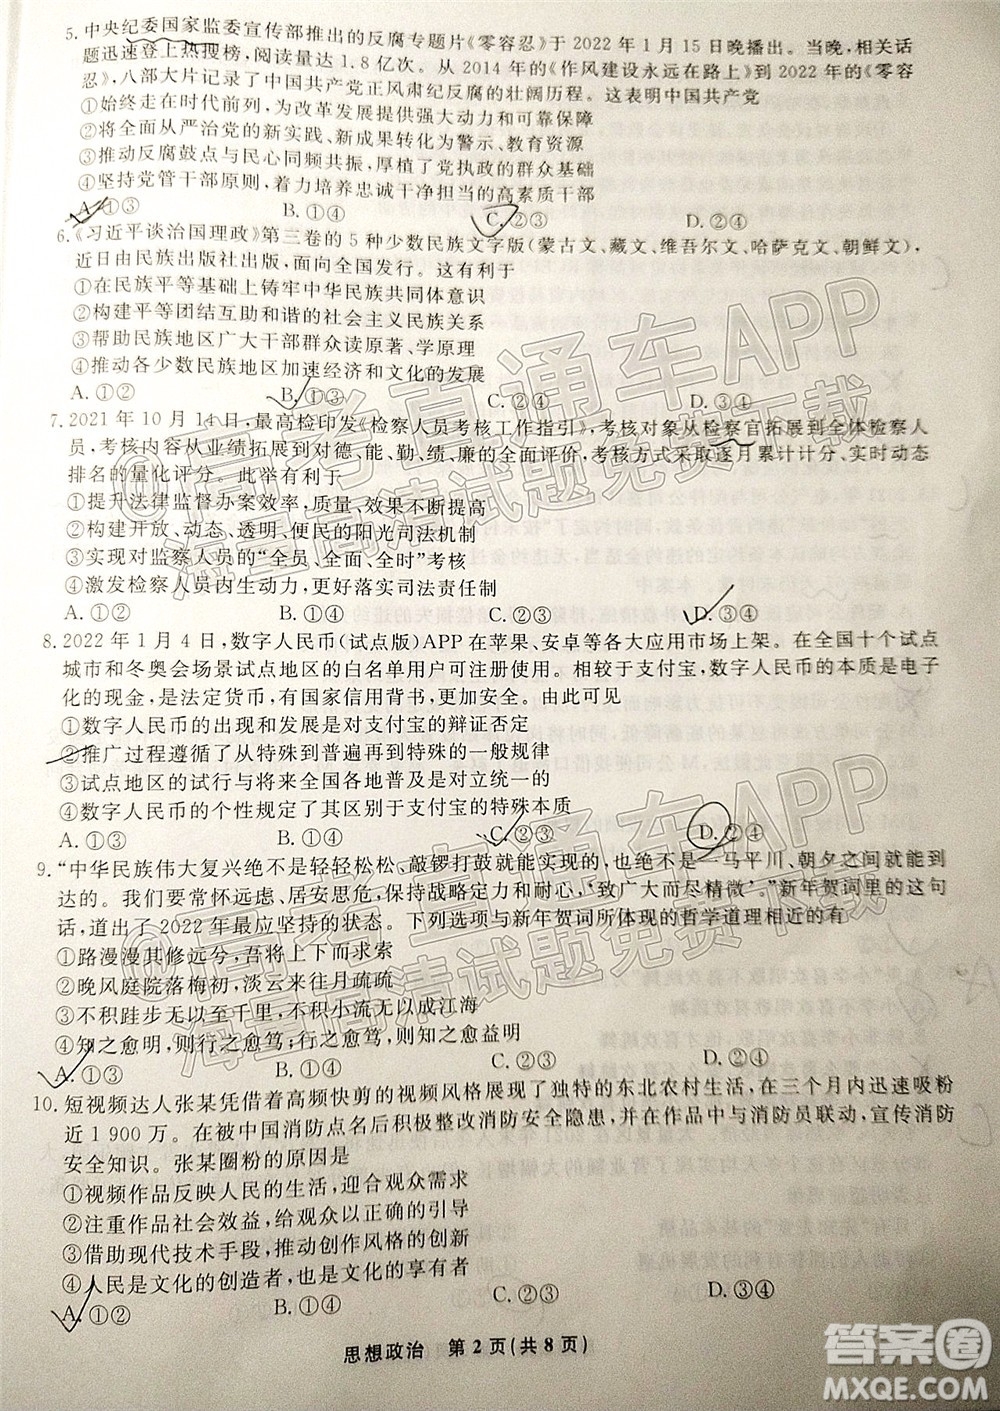 5. 中央纪委国家监委宣传部推出的反腐专题片《零容忍》于 2022 年 1 月 15 日晚播出。当晚,相关话
题迅速登上热搜榜,阅读量达 1.8 亿次。从 2014 年的《作风建设永远在路上》到 2022 年的《零容
忍》,八部大片记录了中国共产党正风肃纪反腐的壮阔历程。这表明中国共产党
①始终走在时代前列,为改革开放提供强大动力和可靠保障
②将全面从严治党的新实践、新成果转化为警示、教育资源
③推动反腐鼓点与民心同频共振,厚植了党执政的群众基础
④坚持党管干部原则,着力培养忠诚干净担当的高素质干部
A. ①③ B. ①④ C. ②③ D. ②④
6.《习近平谈治国理政》第三卷的 5 种少数民族文字版(蒙古文、藏文、维吾尔文、哈萨克文、朝鲜文),
近日由民族出版社出版,面向全国发行。这有利于
①在民族平等基础上铸牢中华民族共同体意识
②构建平等团结互助和谐的社会主义民族关系
③帮助民族地区广大干部群众读原著、学原理
④推动各少数民族地区加速经济和文化的发展
A. ①② B. ①③ C. ②④ D. ③④
7. 2021 年 10 月 14 日,最高检印发《检察人员考核工作指引》,考核对象从检察官拓展到全体检察人
员,考核内容从业绩拓展到对德、能、勤、绩、廉的全面评价,考核方式采取逐月累计计分、实时动态
排名的量化评分。此举有利于
①提升法律监督办案效率,质量、效果不断提高
②构建开放、动态、透明、便民的阳光司法机制
③实现对监察人员的“全员、全面、全时”考核
④激发检察人员内生动力,更好落实司法责任制
A. ①② B. ①④ C. ②③ D. ③④
8. 2022 年 1 月 4 日,数字人民币(试点版)APP 在苹果、安卓等各大应用市场上架。在全国十个试点
城市和冬奥会场景试点地区的白名单用户可注册使用。相较于支付宝,数字人民币的本质是电子
化的现金,是法定货币,有国家信用背书,更加安全。由此可见
①数字人民币的出现和发展是对支付宝的辩证否定
②推广过程遵循了从特殊到普遍再到特殊的一般规律
③试点地区的试行与将来全国各地普及是对立统一的
④数字人民币的个性规定了其区别于支付宝的特殊本质
A. ①③ B. ①④ C. ②③ D. ②④
9. “中华民族伟大复兴绝不是轻轻松松、敲锣打鼓就能实现的,也绝不是一马平川、朝夕之间就能到
达的。我们要常怀远虑、居安思危,保持战略定力和耐心,‘致广大而尽精微’。”新年贺词里的这句
话,道出了 2022 年最应坚持的状态。下列选项与新年贺词所体现的哲学道理相近的有
①路漫漫其修远兮,吾将上下而求索
②晚风庭院落梅初,淡云来往月疏疏
③不积跬步无以至千里,不积小流无以成江海
④知之愈明,则行之愈笃;行之愈笃,则知之愈益明
A. ①③ B. ①④ C. ②③ D. ②④
10. 短视频达人张某凭借着高频快剪的视频风格展现了独特的东北农村生活,在三个月内迅速吸粉
近 1 900 万。在被中国消防点名后积极整改消防安全隐患,并在作品中与消防员联动,宣传消防
安全知识。张某圈粉的原因是
①视频作品反映人民的生活,迎合观众需求
②注重作品社会效益,给观众以正确的引导
③借助现代技术手段,推动创作风格的创新
④人民是文化的创造者,也是文化的享有者
A. ①③ B. ①④ C. ②③ D. ②④
思想政治 第 2 页(共 8 页)
@高考直通车APP
海量高清试题免费下载
@高考直通车APP
海量高清试题免费下载
答案圈
MXQE.COM